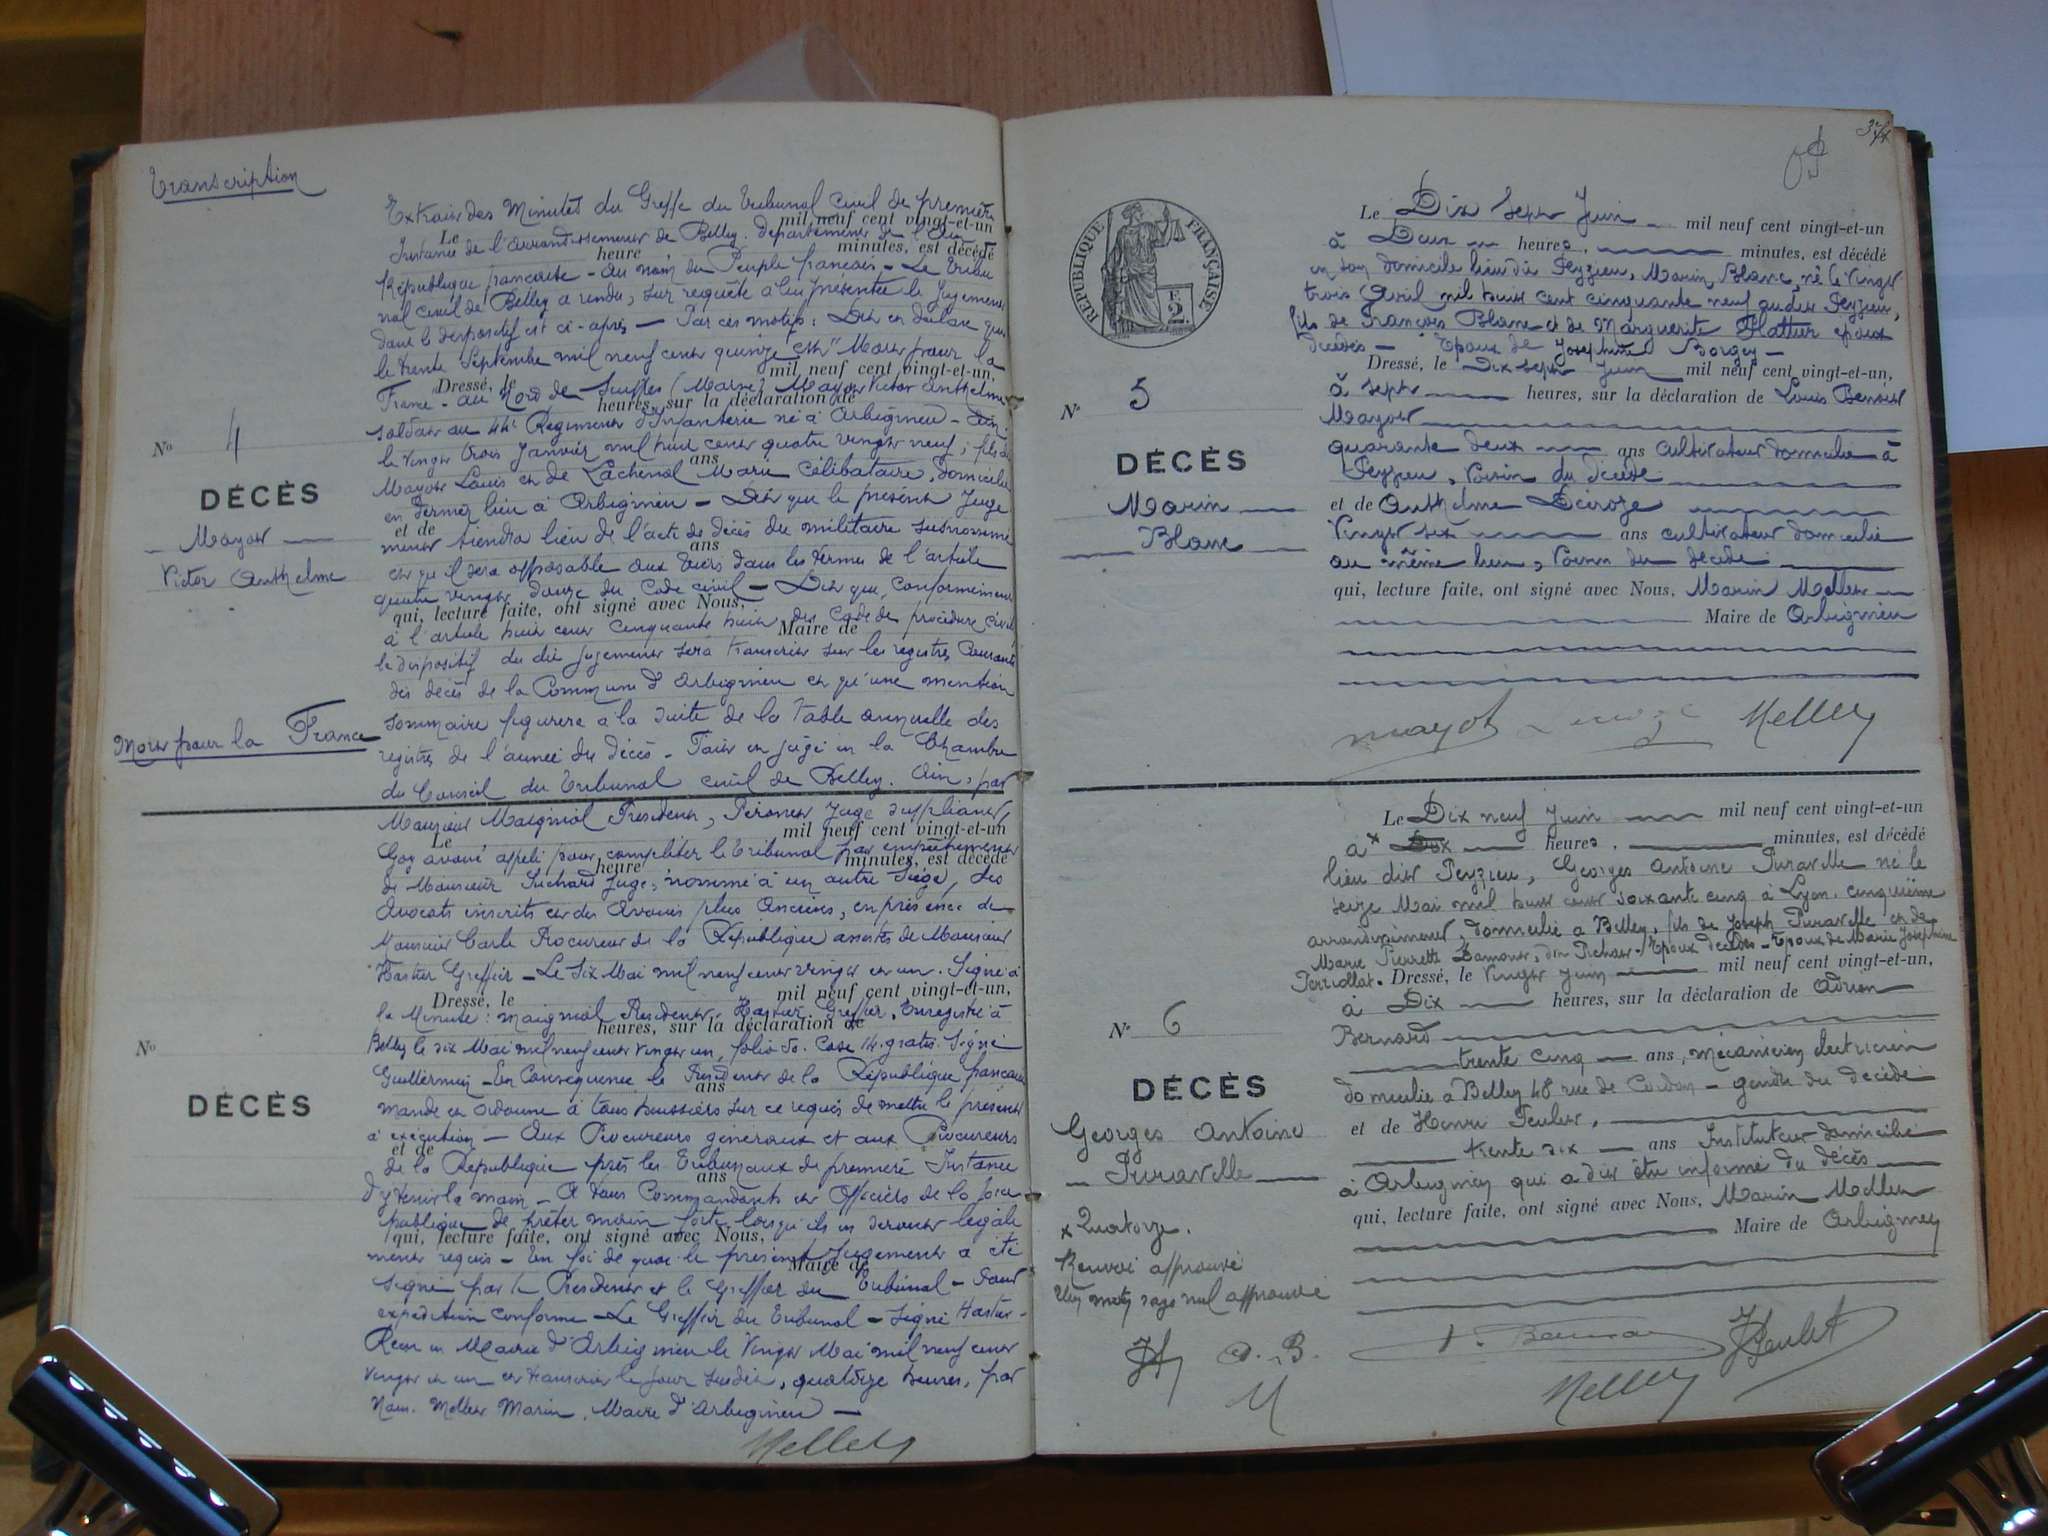 Transcription
Extrait des Minutes du Greffe du Tribunal Civil de première
mil neuf cent vingt-et-un
Le
Instance de l'arrondissement de Belley. département de l'Ain
heure minutes, est décédé
République française - Au nom du Peuple français - Le Tribu
nal civil de Belley a rendu, sur requête à lui présentée le Jugement
dont le dispositif est ci-après - Par ces motifs : Dit et déclare que
le trente Septembre mil neuf cent quinze est "Mort pour la
Dressé, le mil neuf cent vingt-et-un,
France - au Nord de Souppes (Marne) Mayot Victor Anthelme
heures, sur la déclaration de
soldat au 44e Régiment d'Infanterie né à Arbignieu - Ain.
N° 4
le vingt trois Janvier mil huit cent quatre vingt neuf ; fils de
ans
Mayot Louis et de Lachenal Marie Célibataire, domicilié
DÉCÈS
en dernier lieu à Arbignieu - Dit que le présent Juge
et de
Mayot
ment tiendra lieu de l'acte de décès du militaire susnommé
ans
Victor Anthelme
et qu'il sera opposable aux tiers dans les termes de l'article
quatre vingt douze du Code civil - Dit que, conformément
qui, lecture faite, ont signé avec Nous,
à l'article huit cent cinquante huit du Code de procédure civile
Maire de
le dispositif du dit jugement sera transcrit sur les registres courants
des décès de la Commune d'Arbignieu et qu'une mention
Mort pour la France
sommaire figurera à la suite de la table annuelle des
registres de l'année du décès - Fait et jugé en la Chambre
du Conseil du Tribunal civil de Belley. Ain, par
Monsieur Maigniol Président, Peronet Juge suppléant,
Le mil neuf cent vingt-et-un
Goy avoué appelé pour compléter le tribunal par empêchement
heure minutes, est décédé
de Monsieur Suchard Juge, nommé à un autre Siège, des
Avocats inscrits et des Avoués plus Anciens, en présence de
Monsieur Carle Procureur de la République assistés de Monsieur
Hastier Greffier - Le Six Mai mil neuf cent vingt et un. Signé à
Dressé, le mil neuf cent vingt-et-un,
la Minute : Maigniol Président, Hastier Greffier, Enregistré à
heures, sur la déclaration de
N°
Belley le dix Mai mil neuf cent vingt un, folio 50. Case 14. gratis. Signé
Guillermin - En Conséquence le Président de la République française
ans
DÉCÈS
mande et ordonne à tous huissiers sur ce requis de mettre le présent
à exécution - Aux Procureurs généraux et aux Procureurs
et de
de la République près les Tribunaux de première Instance
ans
d'y tenir la main - A tous Commandants et Officiers de la force
publique de prêter main forte lorsqu'ils en seront légale
qui, lecture faite, ont signé avec Nous,
ment requis - En foi de quoi le présent Jugement a été
Maire de
signé par le Président et le Greffier du Tribunal - Pour
expédition conforme - Le Greffier du Tribunal - Signé Hastier -
Reçu en Mairie d'Arbignieu le vingt Mai mil neuf cent
vingt et un et transcrit le jour susdit, quatorze heures, par
Nous. Mellet Marin, Maire d'Arbignieu -
Mellet
RÉPUBLIQUE FRANÇAISE
2
Le Dix Sept Juin mil neuf cent vingt-et-un
à Deux heures, minutes, est décédé
en son domicile lieu dit Peyzieu, Marin Blanc, né le vingt
trois Avril mil huit cent cinquante neuf audit Peyzieu,
fils de François Blanc et de Marguerite Flattur époux
décédés - Epoux de Joséphine Borgey -
Dressé, le Dix sept Juin mil neuf cent vingt-et-un,
à sept heures, sur la déclaration de Louis Benoit
N° 5
Mayot
quarante deux ans cultivateur domicilié à
DÉCÈS
Peyzieu, voisin du décédé
Marin
et de Anthelme Déroze
Blanc
vingt six ans cultivateur domicilié
au même lieu, voisin du décédé
qui, lecture faite, ont signé avec Nous, Marin Mellet
Maire de Arbignieu
mayot Mellet
Le Dix neuf Juin mil neuf cent vingt-et-un
à x Dix heures, minutes, est décédé
lieu dit Peyzieu, Georges Antoine Puravelle né le
seize Mai mil huit cent soixante cinq à Lyon. cinquième
arrondissement, domicilié à Belley, fils de Joseph Puravelle et de
Marie Pierrette Lamour, dit Pichat - Epoux décédés - Epoux de Marie Joséphine
Perriollat. Dressé, le vingt Juin mil neuf cent vingt-et-un,
à Dix heures, sur la déclaration de Adrien
N° 6
Bernard
trente cinq ans, mécanicien électricien
DÉCÈS
domicilié à Belley 48 rue de Cordon - gendre du décédé
Georges Antoine
et de Henri Peulet,
Puravelle
trente six ans Instituteur domicilié
à Arbignieu qui a dit être informé du décès
x Quatorze.
qui, lecture faite, ont signé avec Nous, Marin Mellet
Maire de Arbignieu
Renvoi approuvé
Un mot rayé nul approuvé
A. B.
M
Mellet
HPeulet